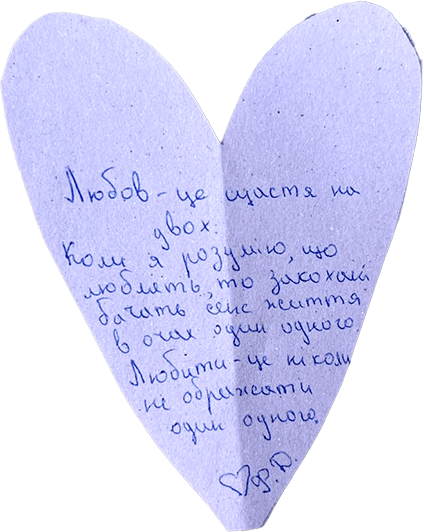 Любов - це щастя на
двох.
Коли я розумію, що
люблять, то закохані
бачать сенс життя
в очах один одного.
Любити - це ніколи
не ображати
один одного.
♡Ф.Д.